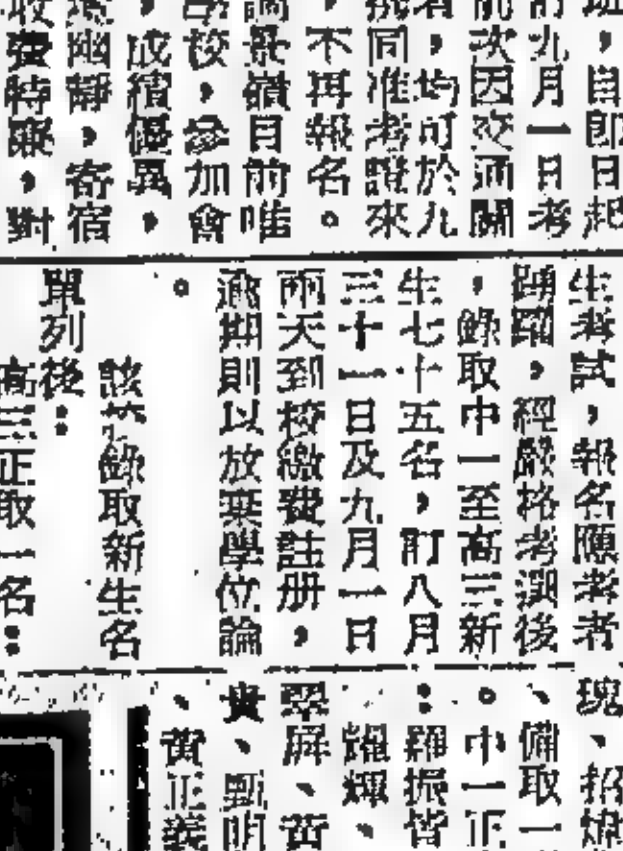 班，自即日起
前九月一日考
前次因交通關
者，均可於九
同准考證來
，不再報名。
景嶺目前唯
學校，參加會
，成績優異，
幽靜，寄宿
收費特廉，對
生考試，報名應考者
踴躍，經嚴格考選後
，錄取中一至高三新
生七十五名，訂八月
三十一日及九月一日
兩天到校繳費註册，
逾期則以放棄學位論
。
該校錄取新生名
單列後：
高三正取一名：
瑰、招
、備取一
。中一正
：羅振皆
耀輝、
翠屏、黃
貴、甄明
、黃正義